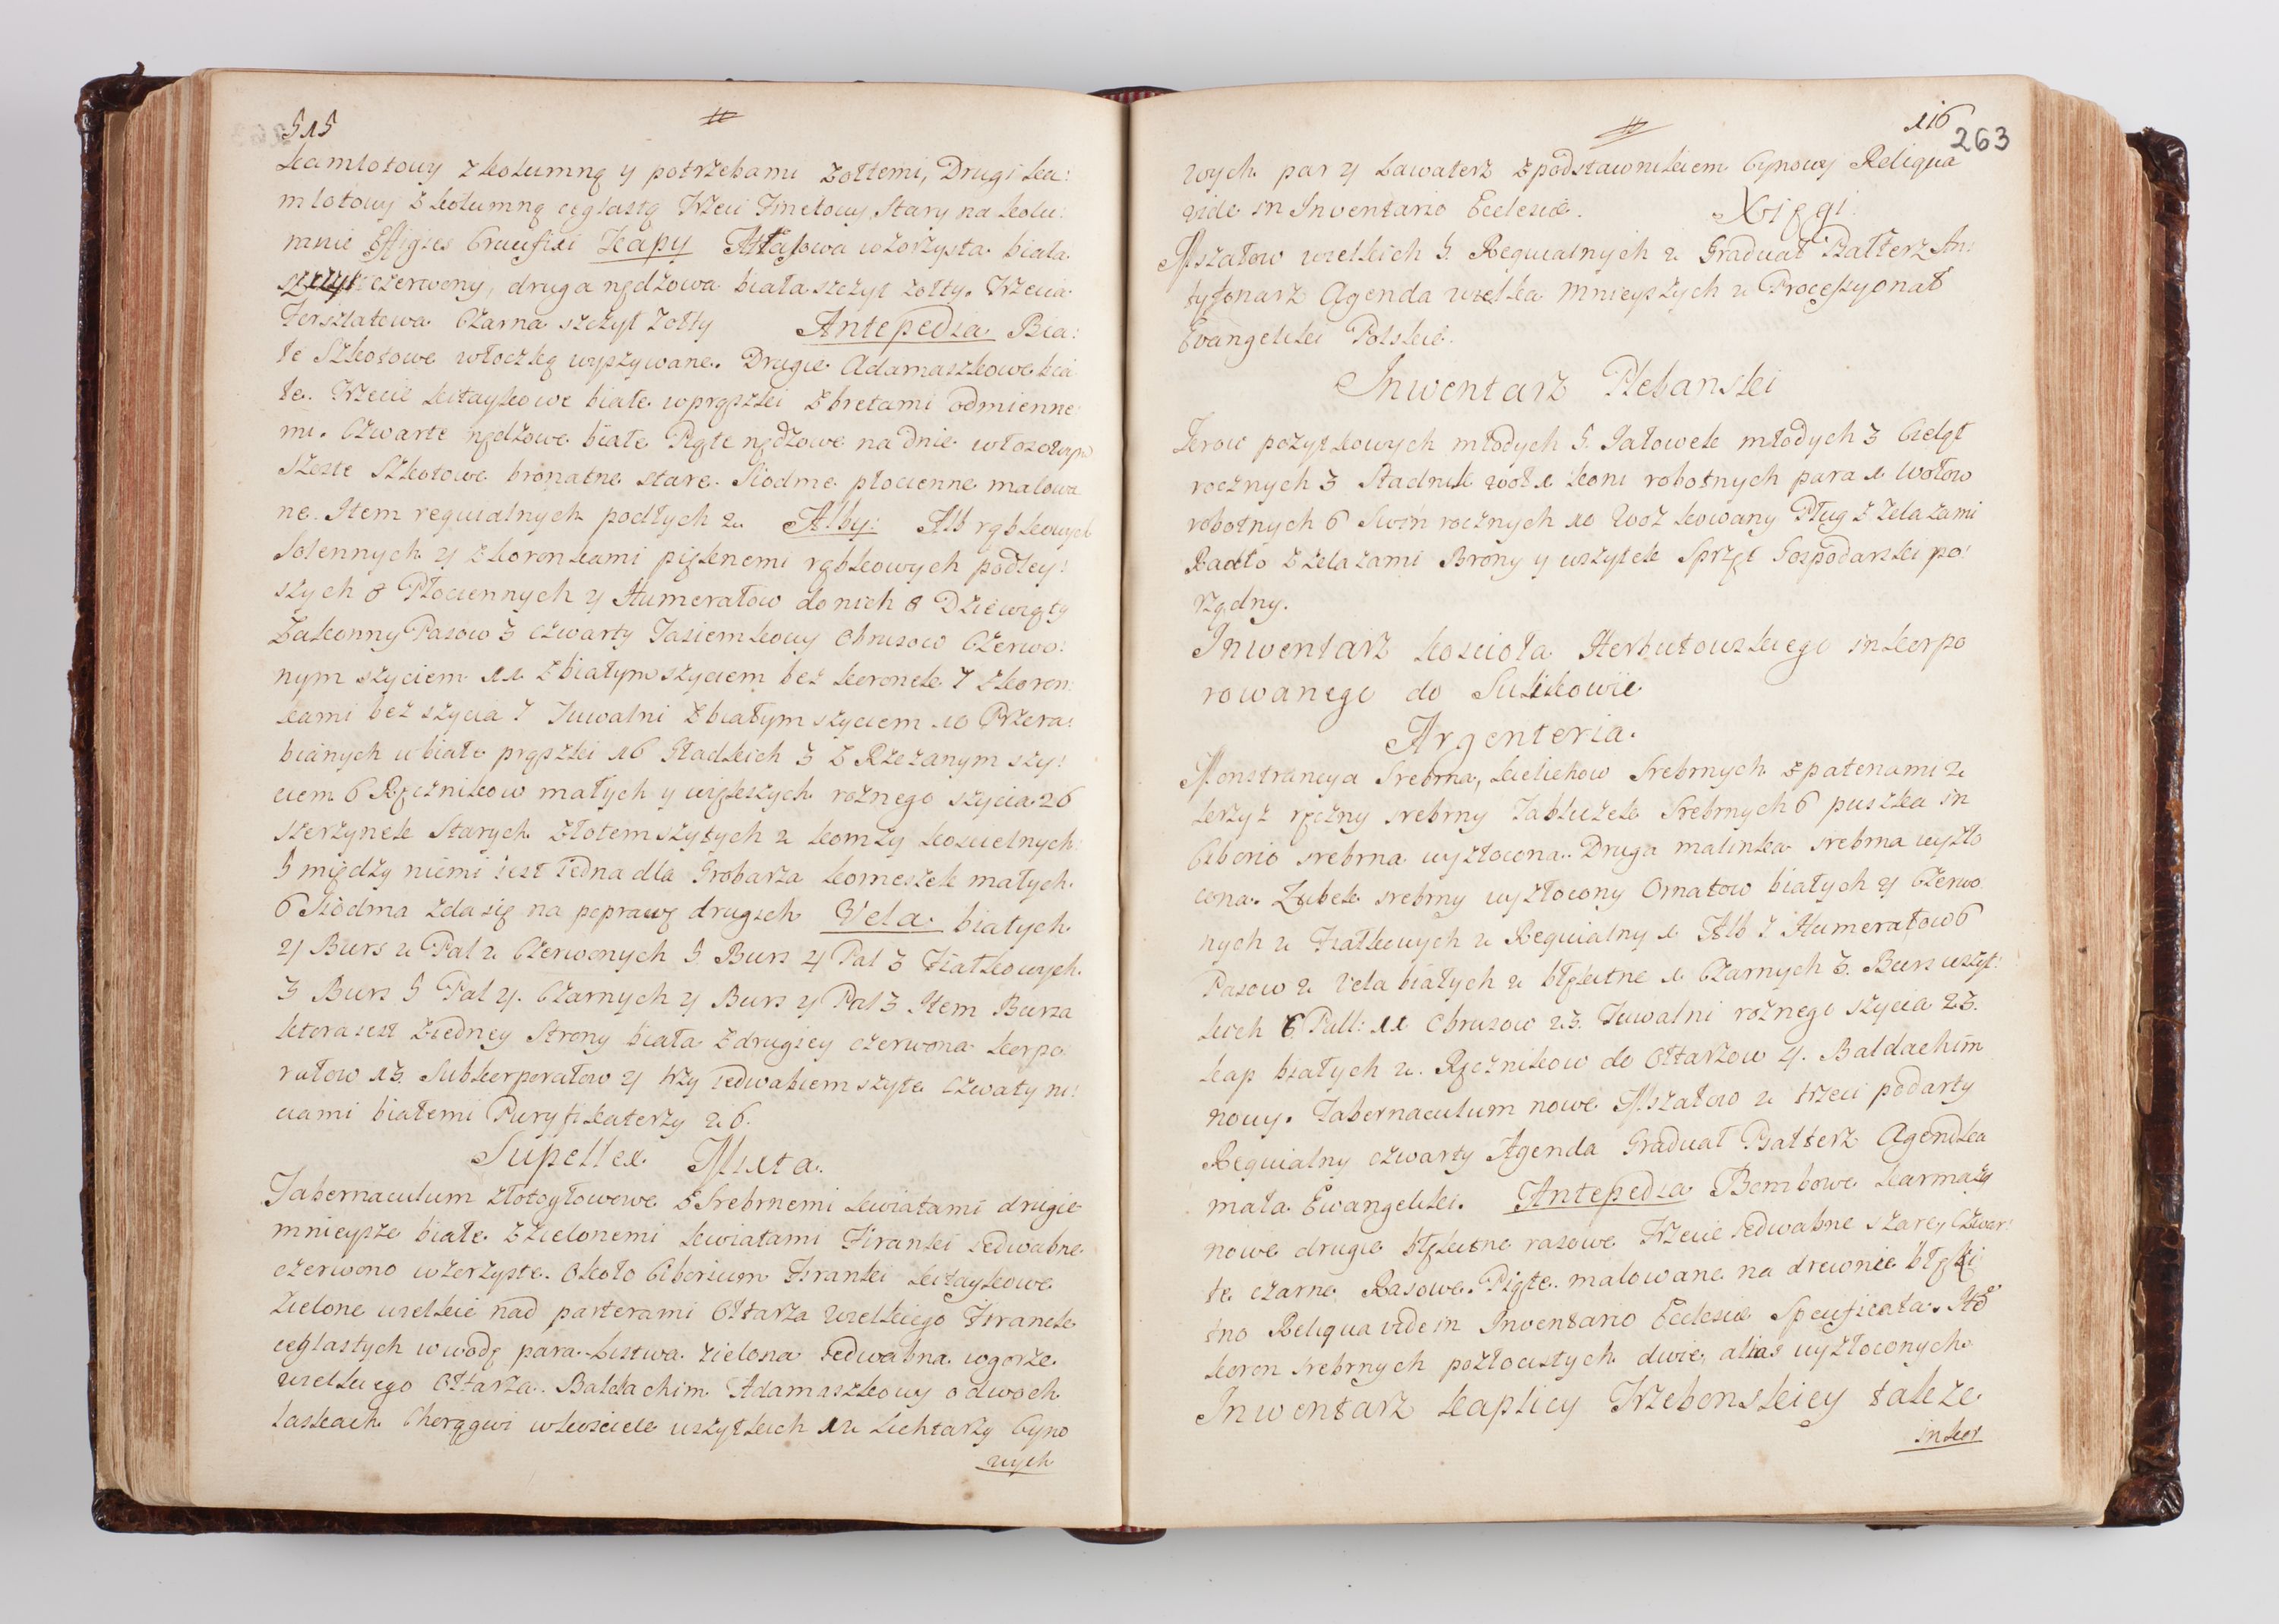 515
kamlotowy z kolumną y potrzebami żołtemi, Drugi ka:
mlotowy z kolumną ceglastą Trzeci Stary na kolu:
mnie Effigies Crucifixi Kapy wzorzysta biała
szczyt czerwony, druga nędzowa biała szczyt zołty. Trzecia
Czarna szczyt zołty Antepedia Bia:
łe Szkotowe włoczką wyszywane. Drugie Adamaszkowe bia
łe. Trzecie kitaykowe białe w prążki z bretami odmienne
mi. Czwarte nędzowe białe Piąte nędzowe na dnie
Szoste Szkotowe bronatne stare. Siodme płocienne malowa
ne. Item requialnych podłych 2. Alby: Alb rąbkowych
Solennych 4 z koronkami pięknemi rąbkowych podley:
szych 8 Płociennych 4 Humerałow do nich 8 Dziewiąty
Zakonny Pasow 3 czwarty Tasiemkowy Obrusow Czerwo:
nym szyciem 11 z białym szyciem bez koronek 7 z koron:
kami bez szycia 7 Tuwalni z białym szyciem 10 Przera:
bianych w białe prążki 16 Gładkich 3 z Rzezanym szy:
ciem 6 Ręcznikow małych y większych roznego szycia 26
szerzynek Starych złotem szytych 2 komzy koscielnych:
5 między niemi iest iedna dla Grobarza komeszek małych
6 Siodma zda się na poprawę drugich Vela białych
4 Burs 2 Pal 2 Czerwonych 5 Burs 4 Pal 3 Fiałkowych
3 Burs 5 Pal 4. Czarnych 4 Burs 4 Pal 3 Item Bursa
ktora iest z iedney Strony biała z drugiey czerwona korpo
rałow 13. Subkorporałow 4 trzy iedwabiem szyte Czwaty ni:
ciami białemi Puryfikaterzy 26.
Supellex Mixta.
Tabernaculum złotogłowowe z Srebrnemi kwiatami drugie
mnieysze białe z zielonemi kwiatami Firanki iedwabne
czerwono wzorzyste. Około Ciborium Firanki kitaykowe
Zielone wielkie nad parterami Ołtarza Wielkiego Firanek
ceglastych w wodę para. Listwa zielona iedwabna w gorze
wielkiego Ołtarza. Baldachim Adamaszkowy o dwoch
laskach Chorągwi w kosciele wszytkich 12 Lichtarzy Cyno
wych

116
263
wych par 4 Lawaterz z podstawnikiem Cynowy Reliqua
vide in Inventario Ecclesiæ. Xięgi:
Mszałow wielkich 5. Requialnych 2 Graduał Psałterz An:
tyfonarz Agenda wielka mnieyszych 2 Processyonał
Evangeliki Polskie.
Inwentarz Plebanski
Krow pozytkowych młodych 5. Jałowek młodych 3 Cieląt
rocznych 3 Stadnik woł 1 koni robotnych para 1 Wołow
robotnych 6 Swin rocznych 10 Woz kowany Pług z Zelazami
Radło z żelazami Brony y wszytek Sprzęt Gospodarski po:
rządny.
Inwentarz koscioła Herbutowskiego inkorpo
rowanego do Sulikowie
Argenteria.
Monstrancya Srebrna, kielichow Srebrnych z patenami 2
krzyz ręczny srebrny Tabliczek Srebrnych 6 puszka in
Ciborio srebrna wyzłocona. Druga malinka srebrna wyzło
cona. Kubek srebrny wyzłocony Ornatow białych 4 Czerwo
nych 2 Fiałkowych 2 Requialny 1 Alb 7 Humerałow 6
Pasow 2 Vela białych 2 błękitne 1 Czarnych 3. Burs wszyt:
kich 6 Pall: 11 Obrusow 23. Tuwalni roznego szycia 23.
kap białych 2. Ręcznikow do Ołtarzow 4. Baldachim
nowy. Tabernaculum nowe Mszałow 2 trzeci podarty
Requialny czwarty Agenda Graduał Psałterz Agendka
mała Ewangeliki. Antepedia Bombowe karmazy
nowe drugie błękitne rasowe Trzecie iedwabne szare, Czwar:
te czarne Rasowe. Piąte malowane na drewnie błęki
tno Reliqua vide in Inventario Ecclesiæ Specificata.
koron srebrnych pozłocistych dwie, alias wyzłoconych
Inwentarz kaplicy Trzebonskiey takze
inkor